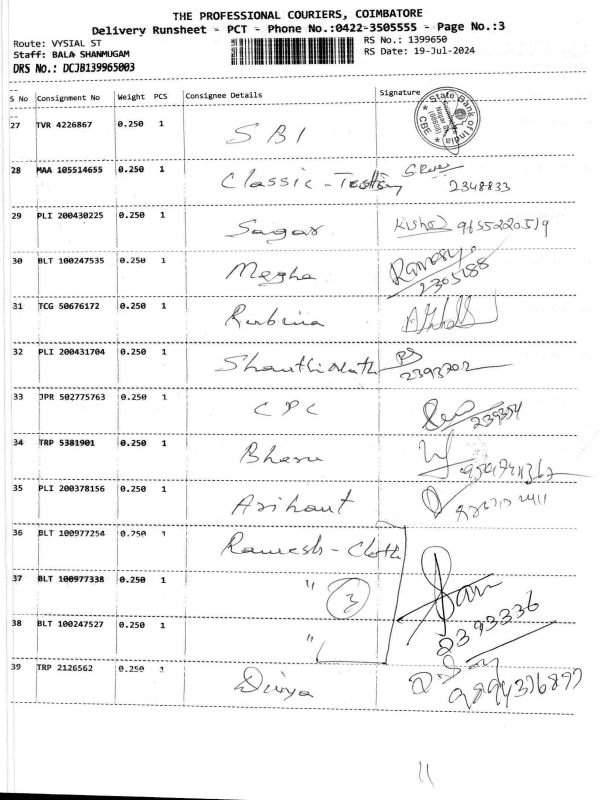 THE PROFESSIONAL COURIERS, COIMBATORE
Delivery Runsheet - PCT - Phone No.:0422-3505555 - Page No.:3
Route: VYSIAL ST
RS No.: 1399650
Staff: BALA SHANMUGAM
RS Date: 19-Jul-2024
DRS No.: DCJB139965003
S No Consignment No Weight PCS Consignee Details Signature
State Bank of India
CBE
27 TVR 4226867 0.250 1 SBI
28 MAA 105514655 0.250 1 Classic - 2348833
29 PLI 200430225 0.250 1 Sagar 9655220519
30 BLT 100247535 0.250 1 Megha Ramesh 2305288
31 TCG 50676172 0.250 1 Rubina
32 PLI 200431704 0.250 1 Shanthinath PS 2393702
33 JPR 502775763 0.250 1 CPC 239354
34 TRP 5381901 0.250 1
35 PLI 200378156 0.250 1 Arihant
36 BLT 100977254 0.250 1 Ramesh - Cloth
37 BLT 100977338 0.250 1 " 3
38 BLT 100247527 0.250 1 " 8393336
39 TRP 2126562 0.250 1 Divya
11